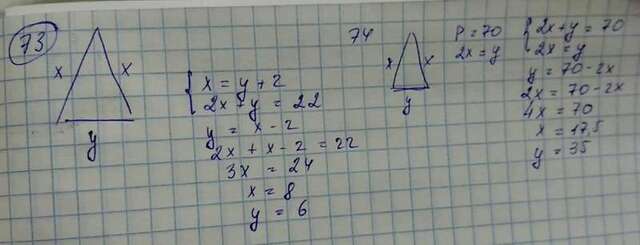 73
x x
y
x = y + 2
2x + y = 22
y = x - 2
2x + x - 2 = 22
3x = 24
x = 8
y = 6
74
x x
y
P = 70
2x = y
2x + y = 70
2x = y
y = 70 - 2x
2x = 70 - 2x
4x = 70
x = 17,5
y = 35